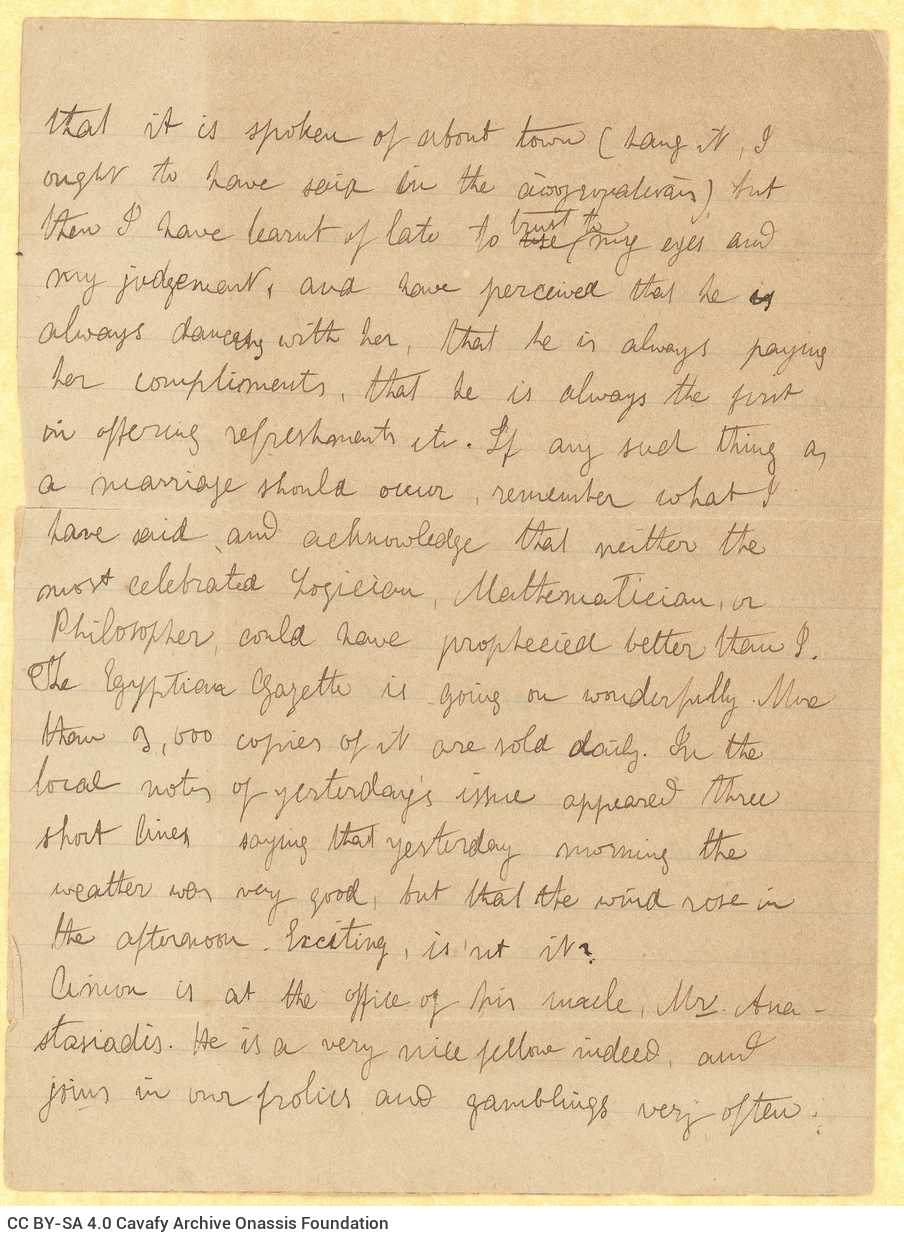 that it is spoken of about town (hang it, I
ought to have said in the ) but
then I have learnt of late to trust to my eyes and
my judgement, and have perceived that he is
always dancing with her, that he is always paying
her complioments, that he is always the first
in offering refreshments etc. If any such thing as
a marriage should occur, remember what I
have said, and acknowledge that neither the
most celebrated Logician, Mathematician, or
Philosopher, could have prophecied better than I.
The Egyptian Gazette is going on wonderfully. More
than 3,000 copies of it are sold daily. In the
local notes of yesterday's issue appeared three
short lines saying that yesterday morning the
weather was very good, but that the wind rose in
the afternoon. Exciting, is'nt it?
Cimon is at the office of his uncle, Mr. Ana-
stasiadis. He is a very nice fellow indeed, and
joins in our frolics and gamblings very often.
CC BY-SA 4.0 Cavafy Archive Onassis Foundation